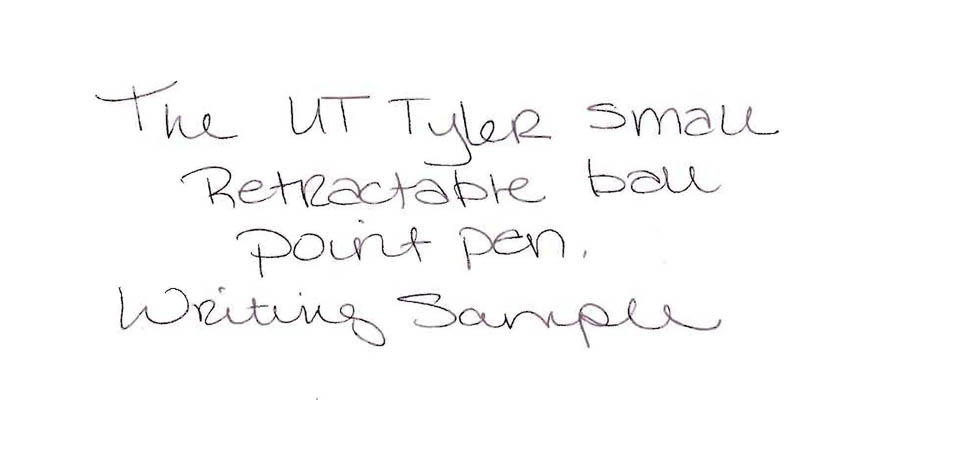 The UT Tyler small
Retractable ball
point pen.
Writing Sample